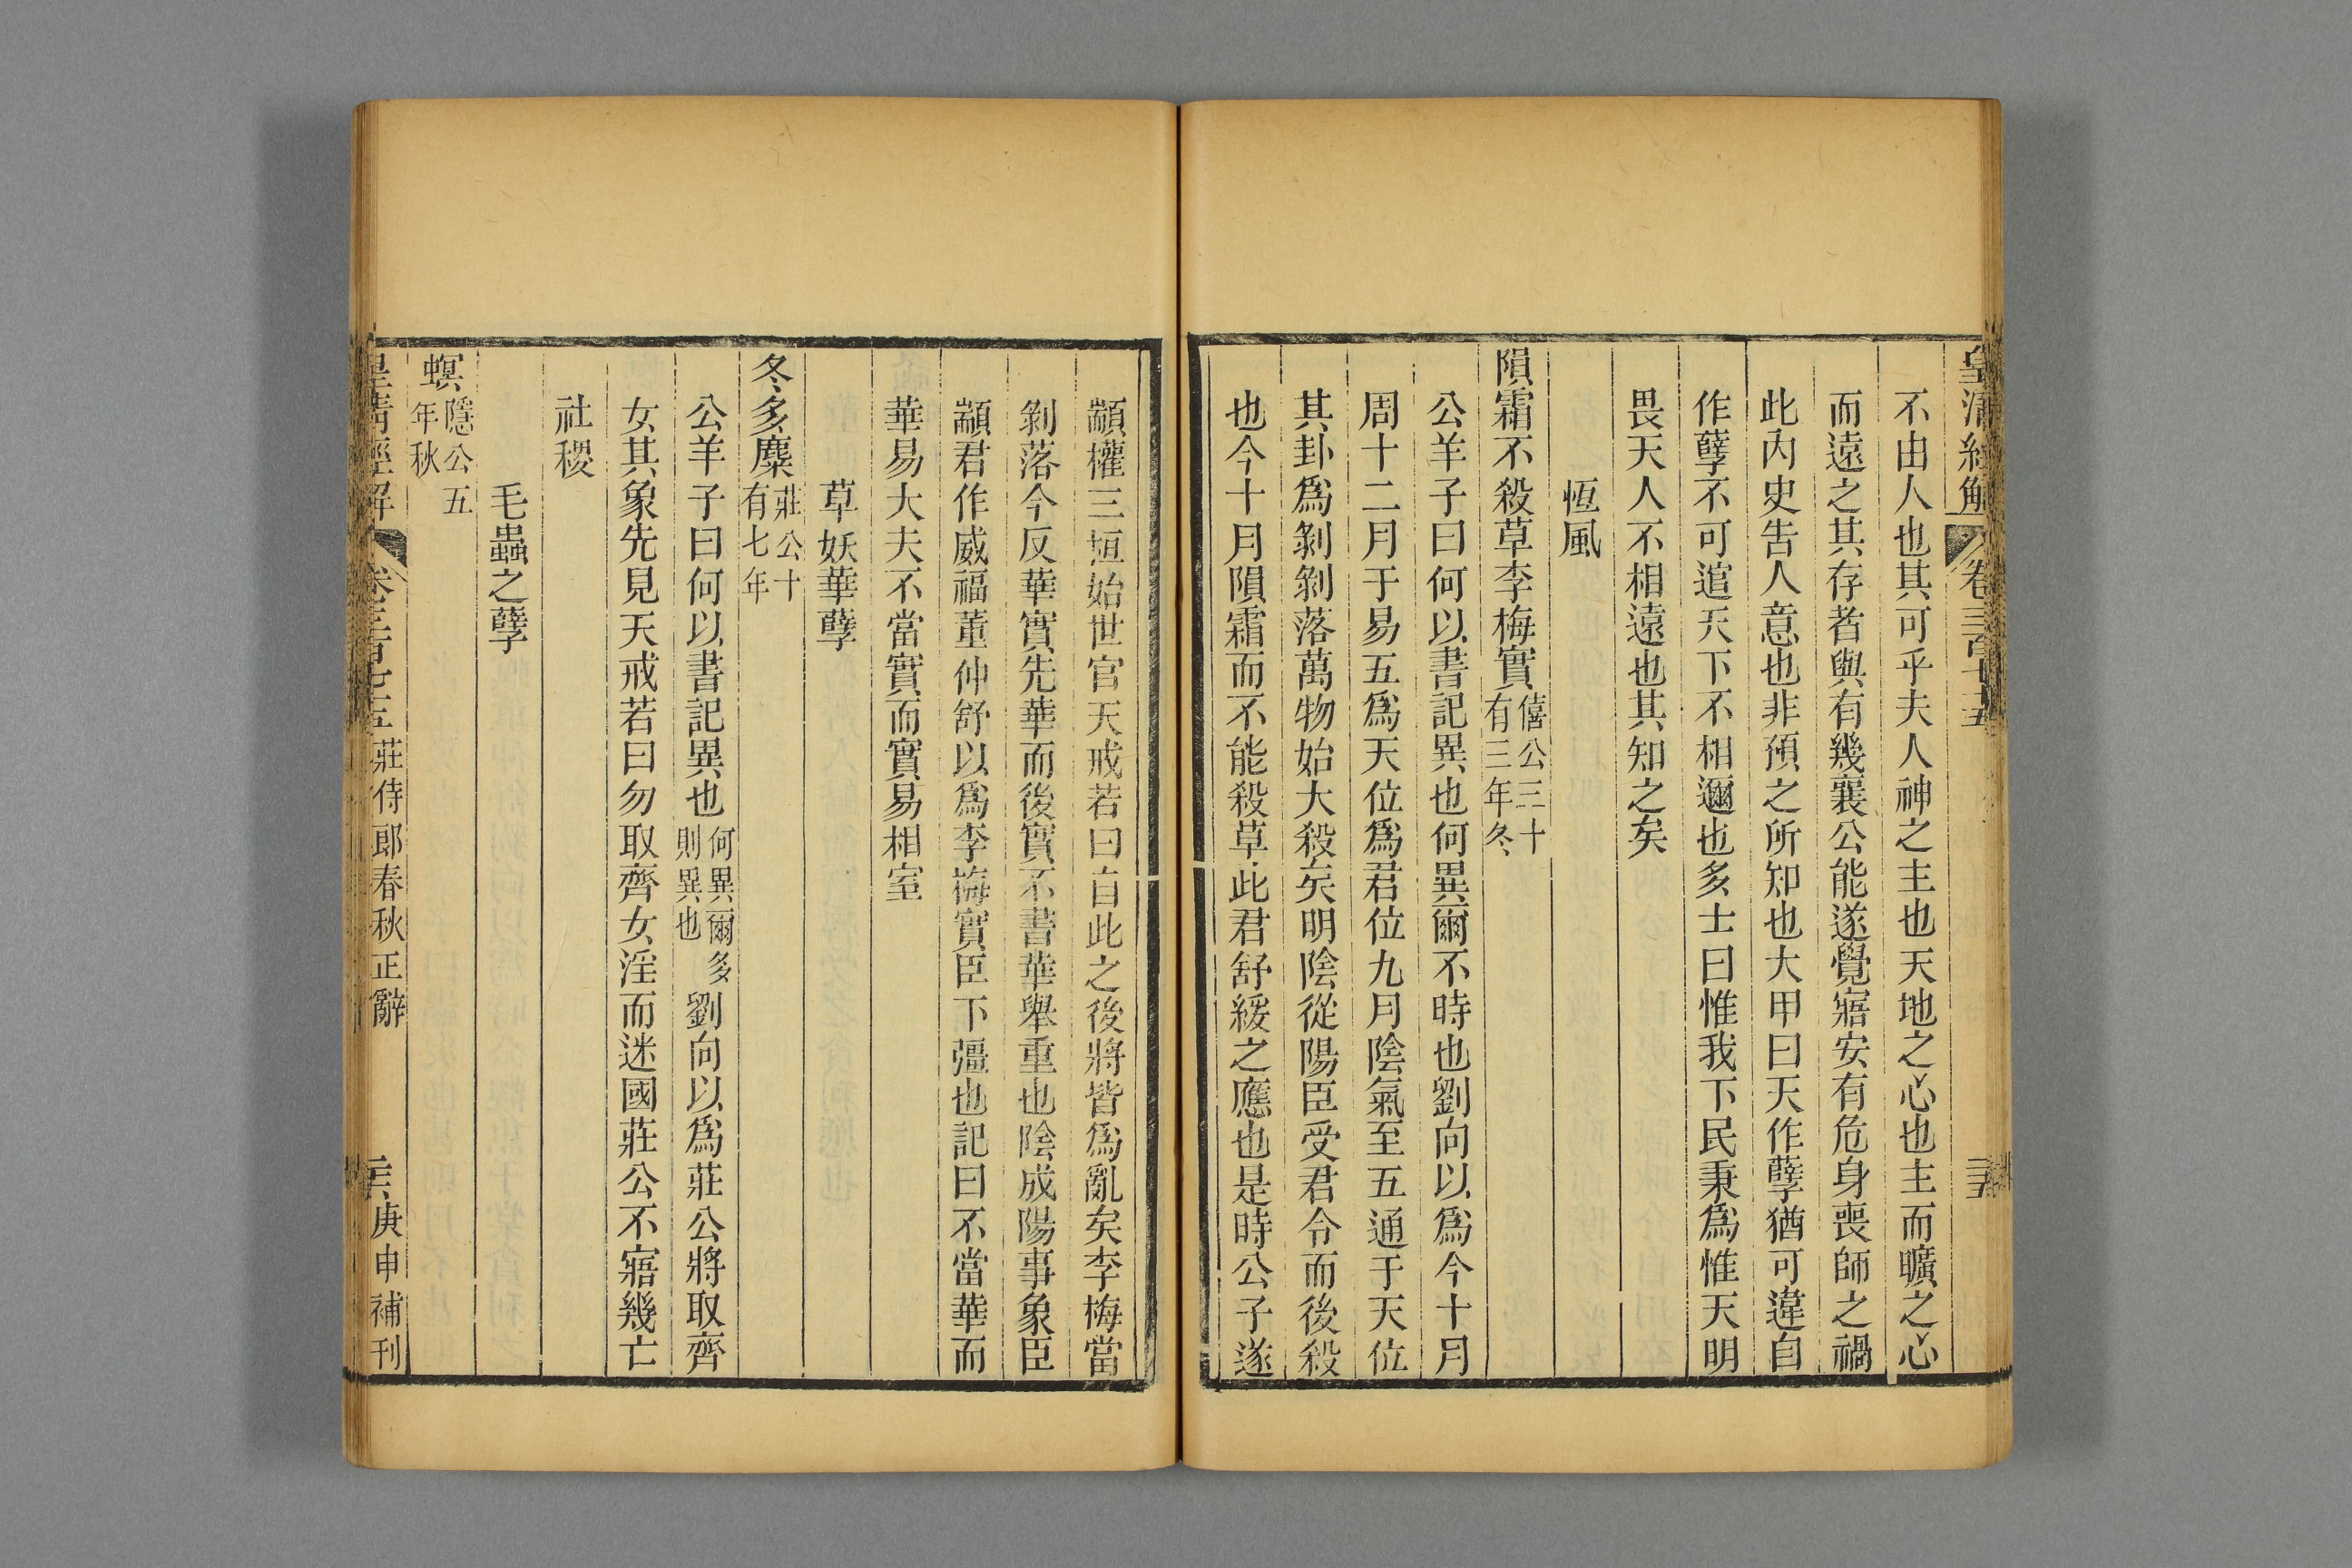 皇清經解 卷三百七十五 三五
不由人也其可乎夫人神之主也天地之心也主而曠之心
而遠之其存者與有幾襄公能遂覺寤安有危身喪師之禍
此內史告人意也非預之所知也大甲曰天作孽猶可違自
作孽不可逭天下不相邇也多士曰惟我下民秉爲惟天明
畏天人不相遠也其知之矣
恆風
隕霜不殺草李梅實僖公三十有三年冬
公羊子曰何以書記異也何異爾不時也劉向以爲今十月
周十二月于易五爲天位爲君位九月陰氣至五通于天位
其卦爲剝剝落萬物始大殺矣明陰從陽臣受君令而後殺
也今十月隕霜而不能殺草此君舒緩之應也是時公子遂
顓權三桓始世官天戒若曰自此之後將皆爲亂矣李梅當
剝落今反華實先華而後實不書華舉重也陰成陽事象臣
顓君作威福董仲舒以爲李梅實臣下彊也記曰不當華而
華易大夫不當實而實易相室
草妖華孽
冬多麋莊公十有七年
公羊子曰何以書記異也何異爾多則異也劉向以爲莊公將取齊
女其象先見天戒若曰勿取齊女淫而迷國莊公不寤幾亡
社稷
毛蟲之孽
螟隱公五年秋
皇清經解 卷三百七十五 莊侍郎春秋正辭 庚申補刊